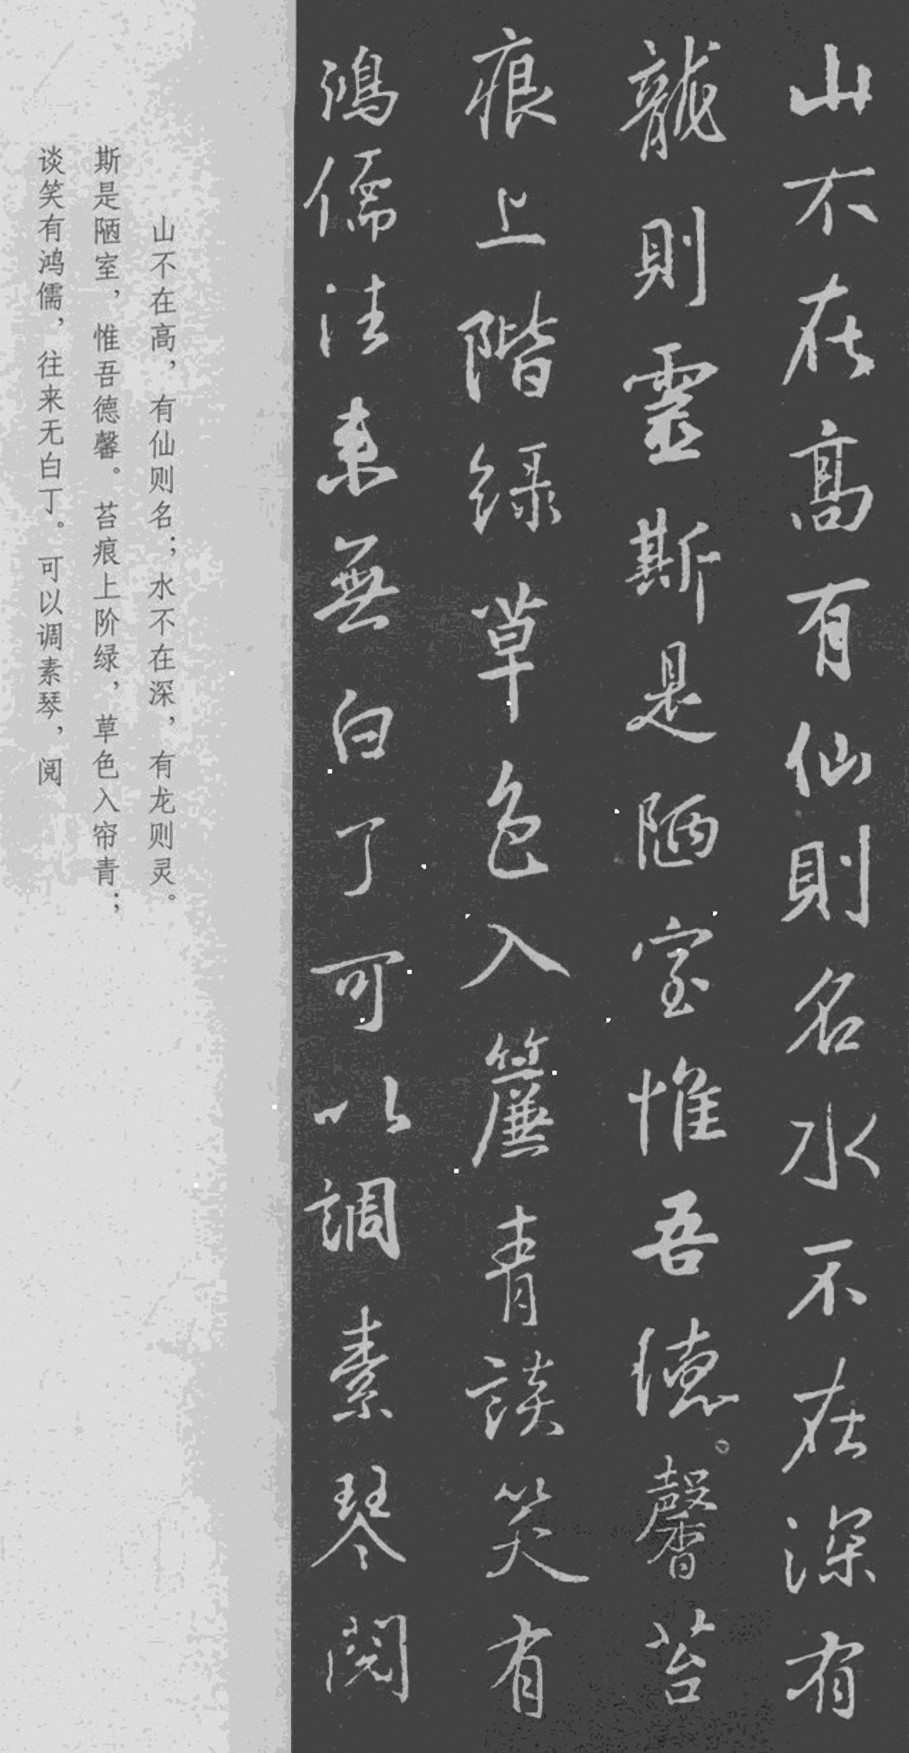 山不在高有仙則名水不在深有
龍則靈斯是陋室惟吾德馨苔
痕上階緑草色入簾青談笑有
鴻儒往来無白丁可以調素琴閱
山不在高，有仙则名；水不在深，有龙则灵。
斯是陋室，惟吾德馨。苔痕上阶绿，草色入帘青；
谈笑有鸿儒，往来无白丁。可以调素琴，阅